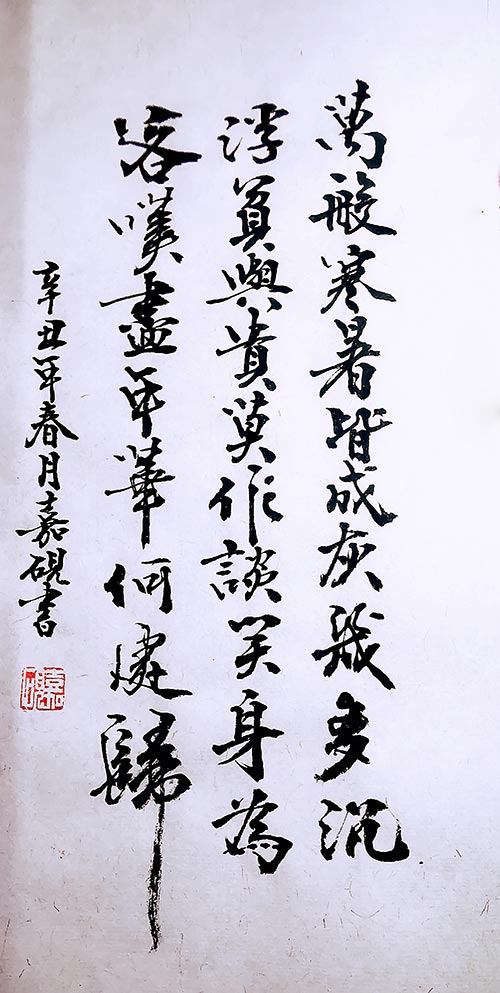 萬般寒暑皆成灰幾多沉
浮貧與貴莫作談笑身為
客嘆盡年華何處歸
辛丑年春月嘉硯書
嘉硯